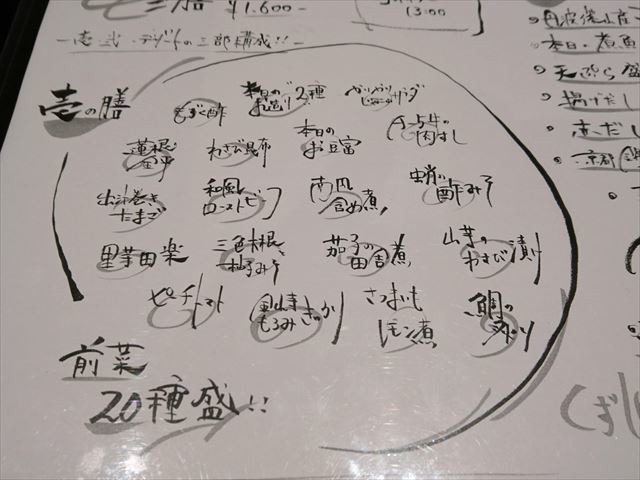 三膳 ¥1,600-
13:00
ー壱・弐・デザートの三部構成!!ー
壱の膳
もずく酢
本日の
お造り2種
かりかり
じゃこサラダ
蓮根
金平
わさび昆布
本日の
お豆富
肉すし
出汁巻き
たまご
和風
ローストビーフ
南瓜
含め煮
酢みそ
里芋田楽
三色大根
柚子みそ
茄子の
田舎煮
山芋の
わさび漬
ピーナッツ
金山寺
もろみきゅうり
さつまいも
レモン煮
鯛の
前菜
20種盛!!
本日・煮魚
天ぷら盛
揚げだし
赤だし
京都